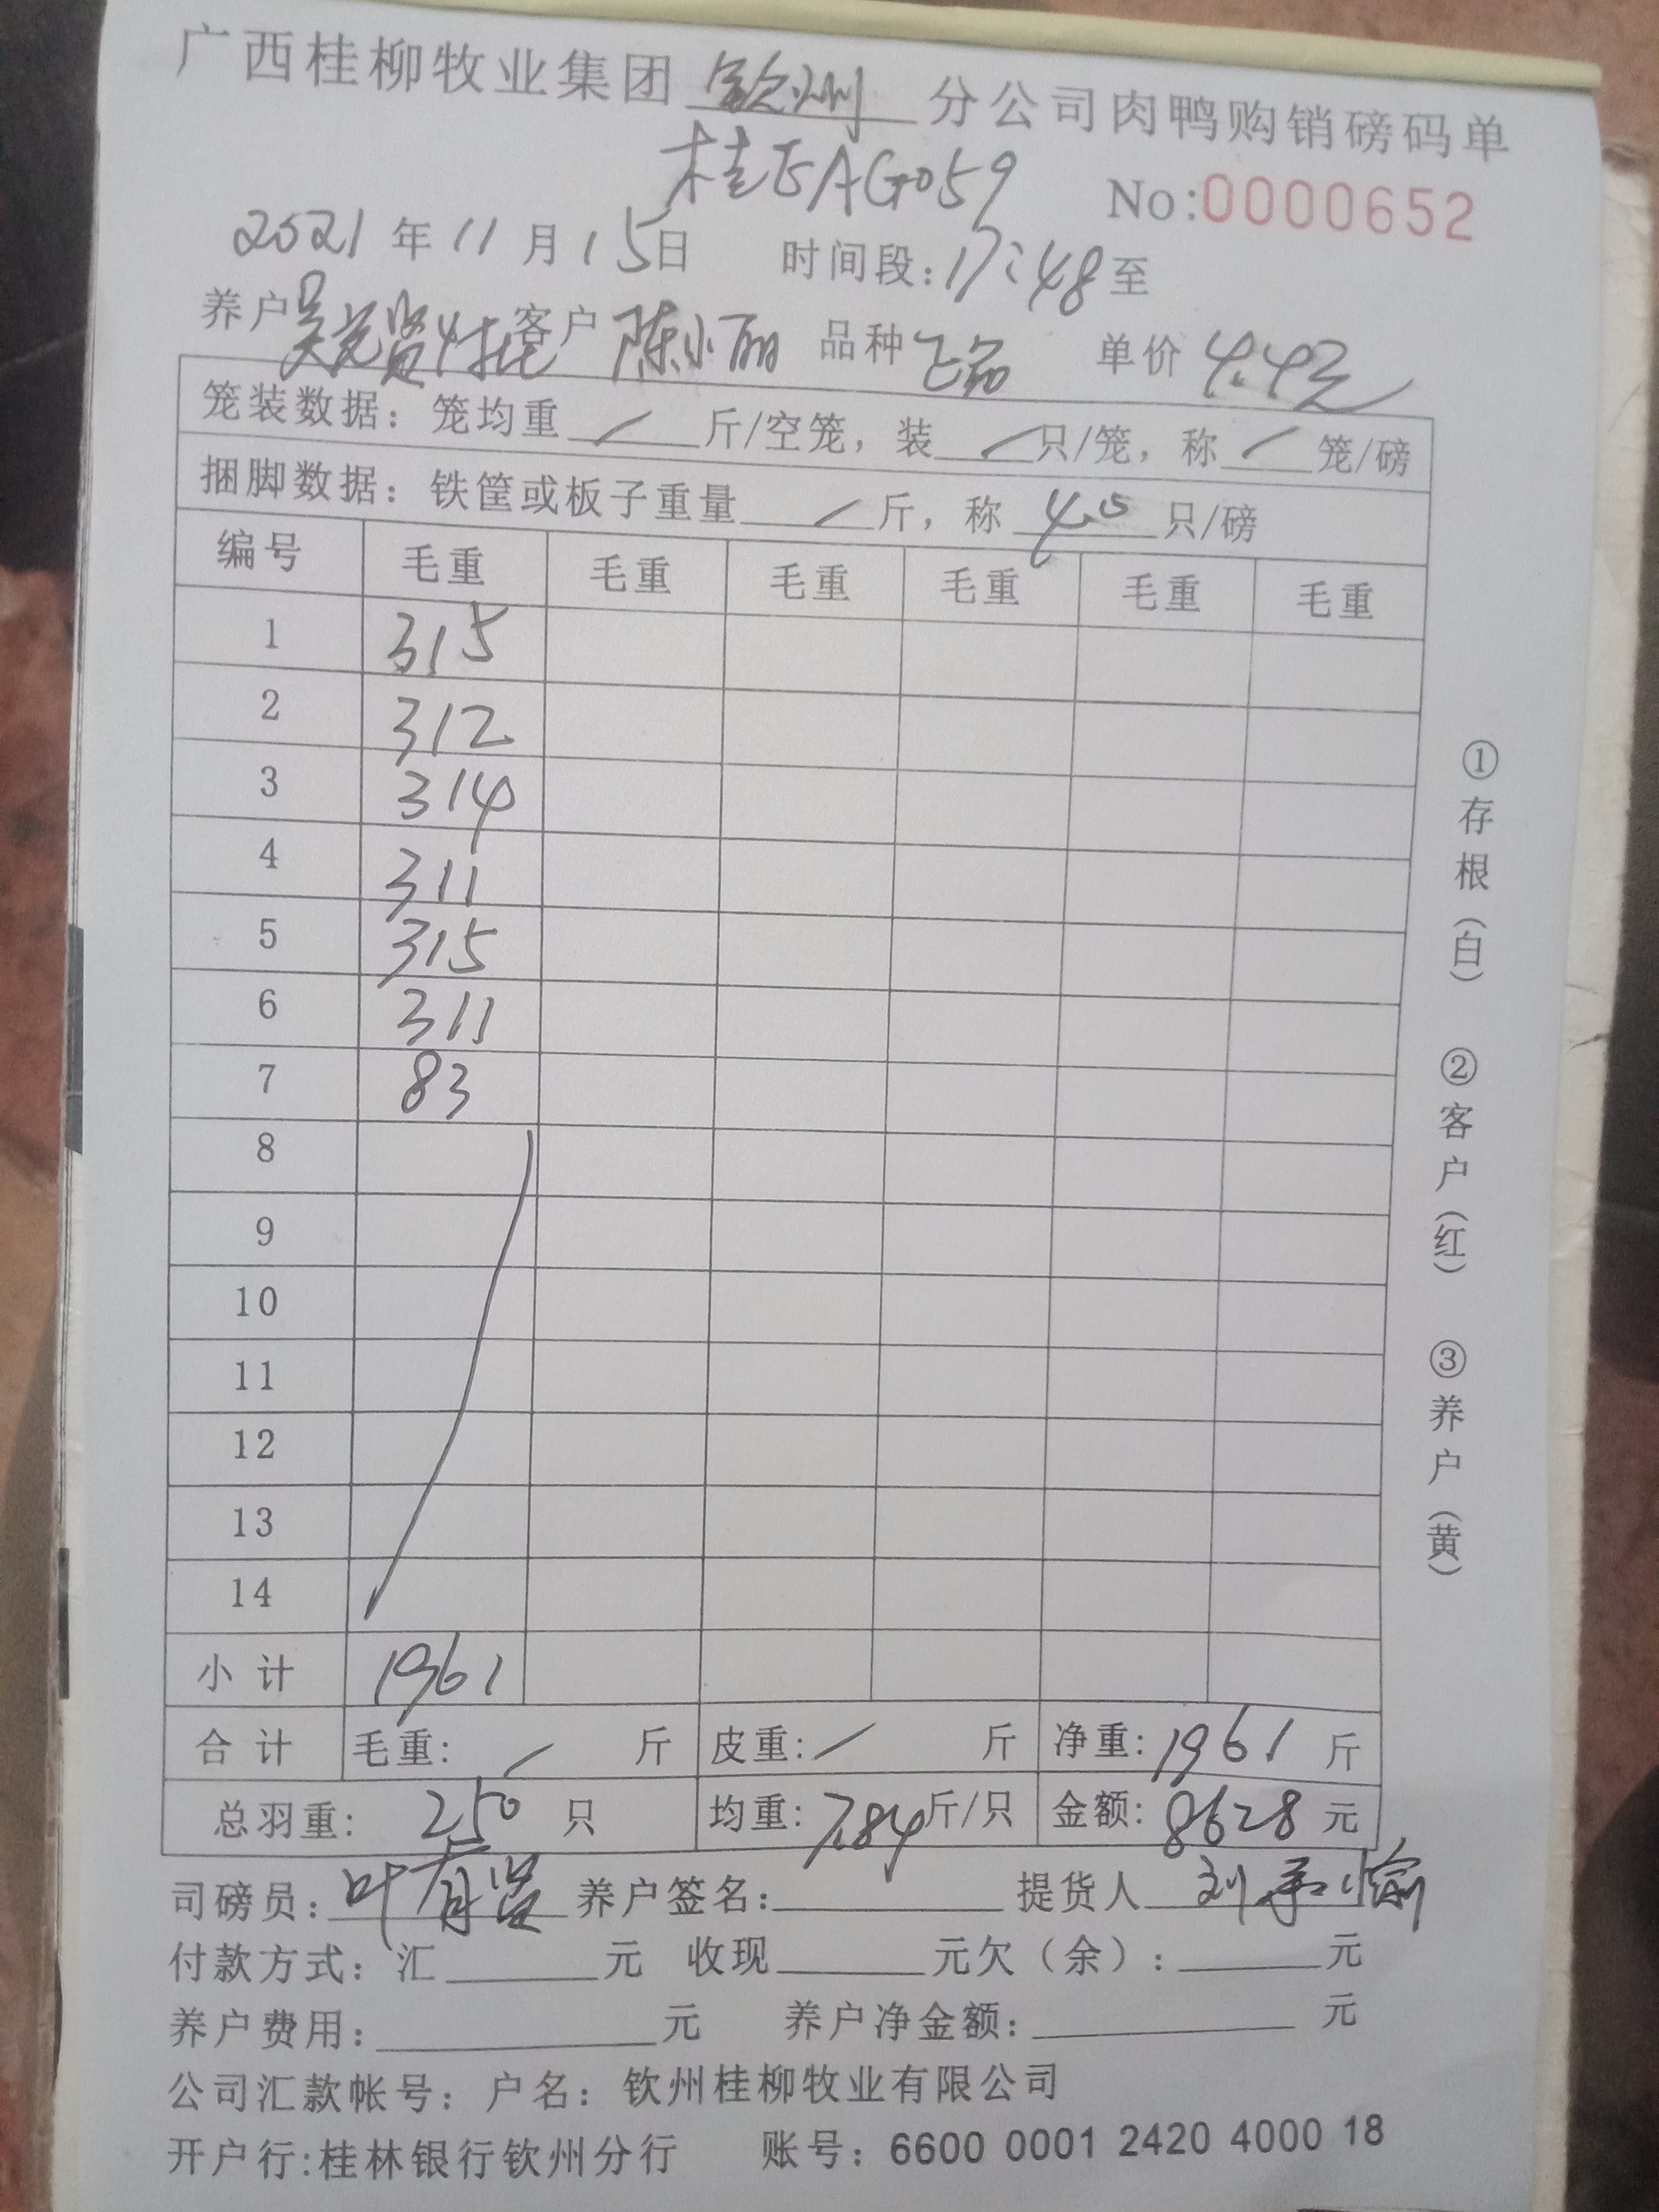 广西桂柳牧业集团 钦州 分公司肉鸭购销磅码单
桂EAG059 No:0000652
2021 年 11 月 15 日 时间段:17:48 至
养户 客户 陈小丽 品种 单价 4.4元
笼装数据：笼均重 / 斤/空笼，装 / 只/笼，称 / 笼/磅
捆脚数据：铁筐或板子重量 / 斤，称 40 只/磅
编号 毛重 毛重 毛重 毛重 毛重 毛重
1 315
2 312
3 314
4 311
5 315
6 311
7 83
8
9
10
11
12
13
14
小计 1961
合计 毛重: / 斤 皮重: / 斤 净重: 1961 斤
总羽重: 250 只 均重: 7.84 斤/只 金额: 8628 元
司磅员: 叶 养户签名: 提货人 刘
付款方式：汇 元 收现 元欠（余）: 元
养户费用: 元 养户净金额: 元
公司汇款帐号：户名：钦州桂柳牧业有限公司
开户行:桂林银行钦州分行 账号：6600 0001 2420 4000 18
①存根（白） ②客户（红） ③养户（黄）